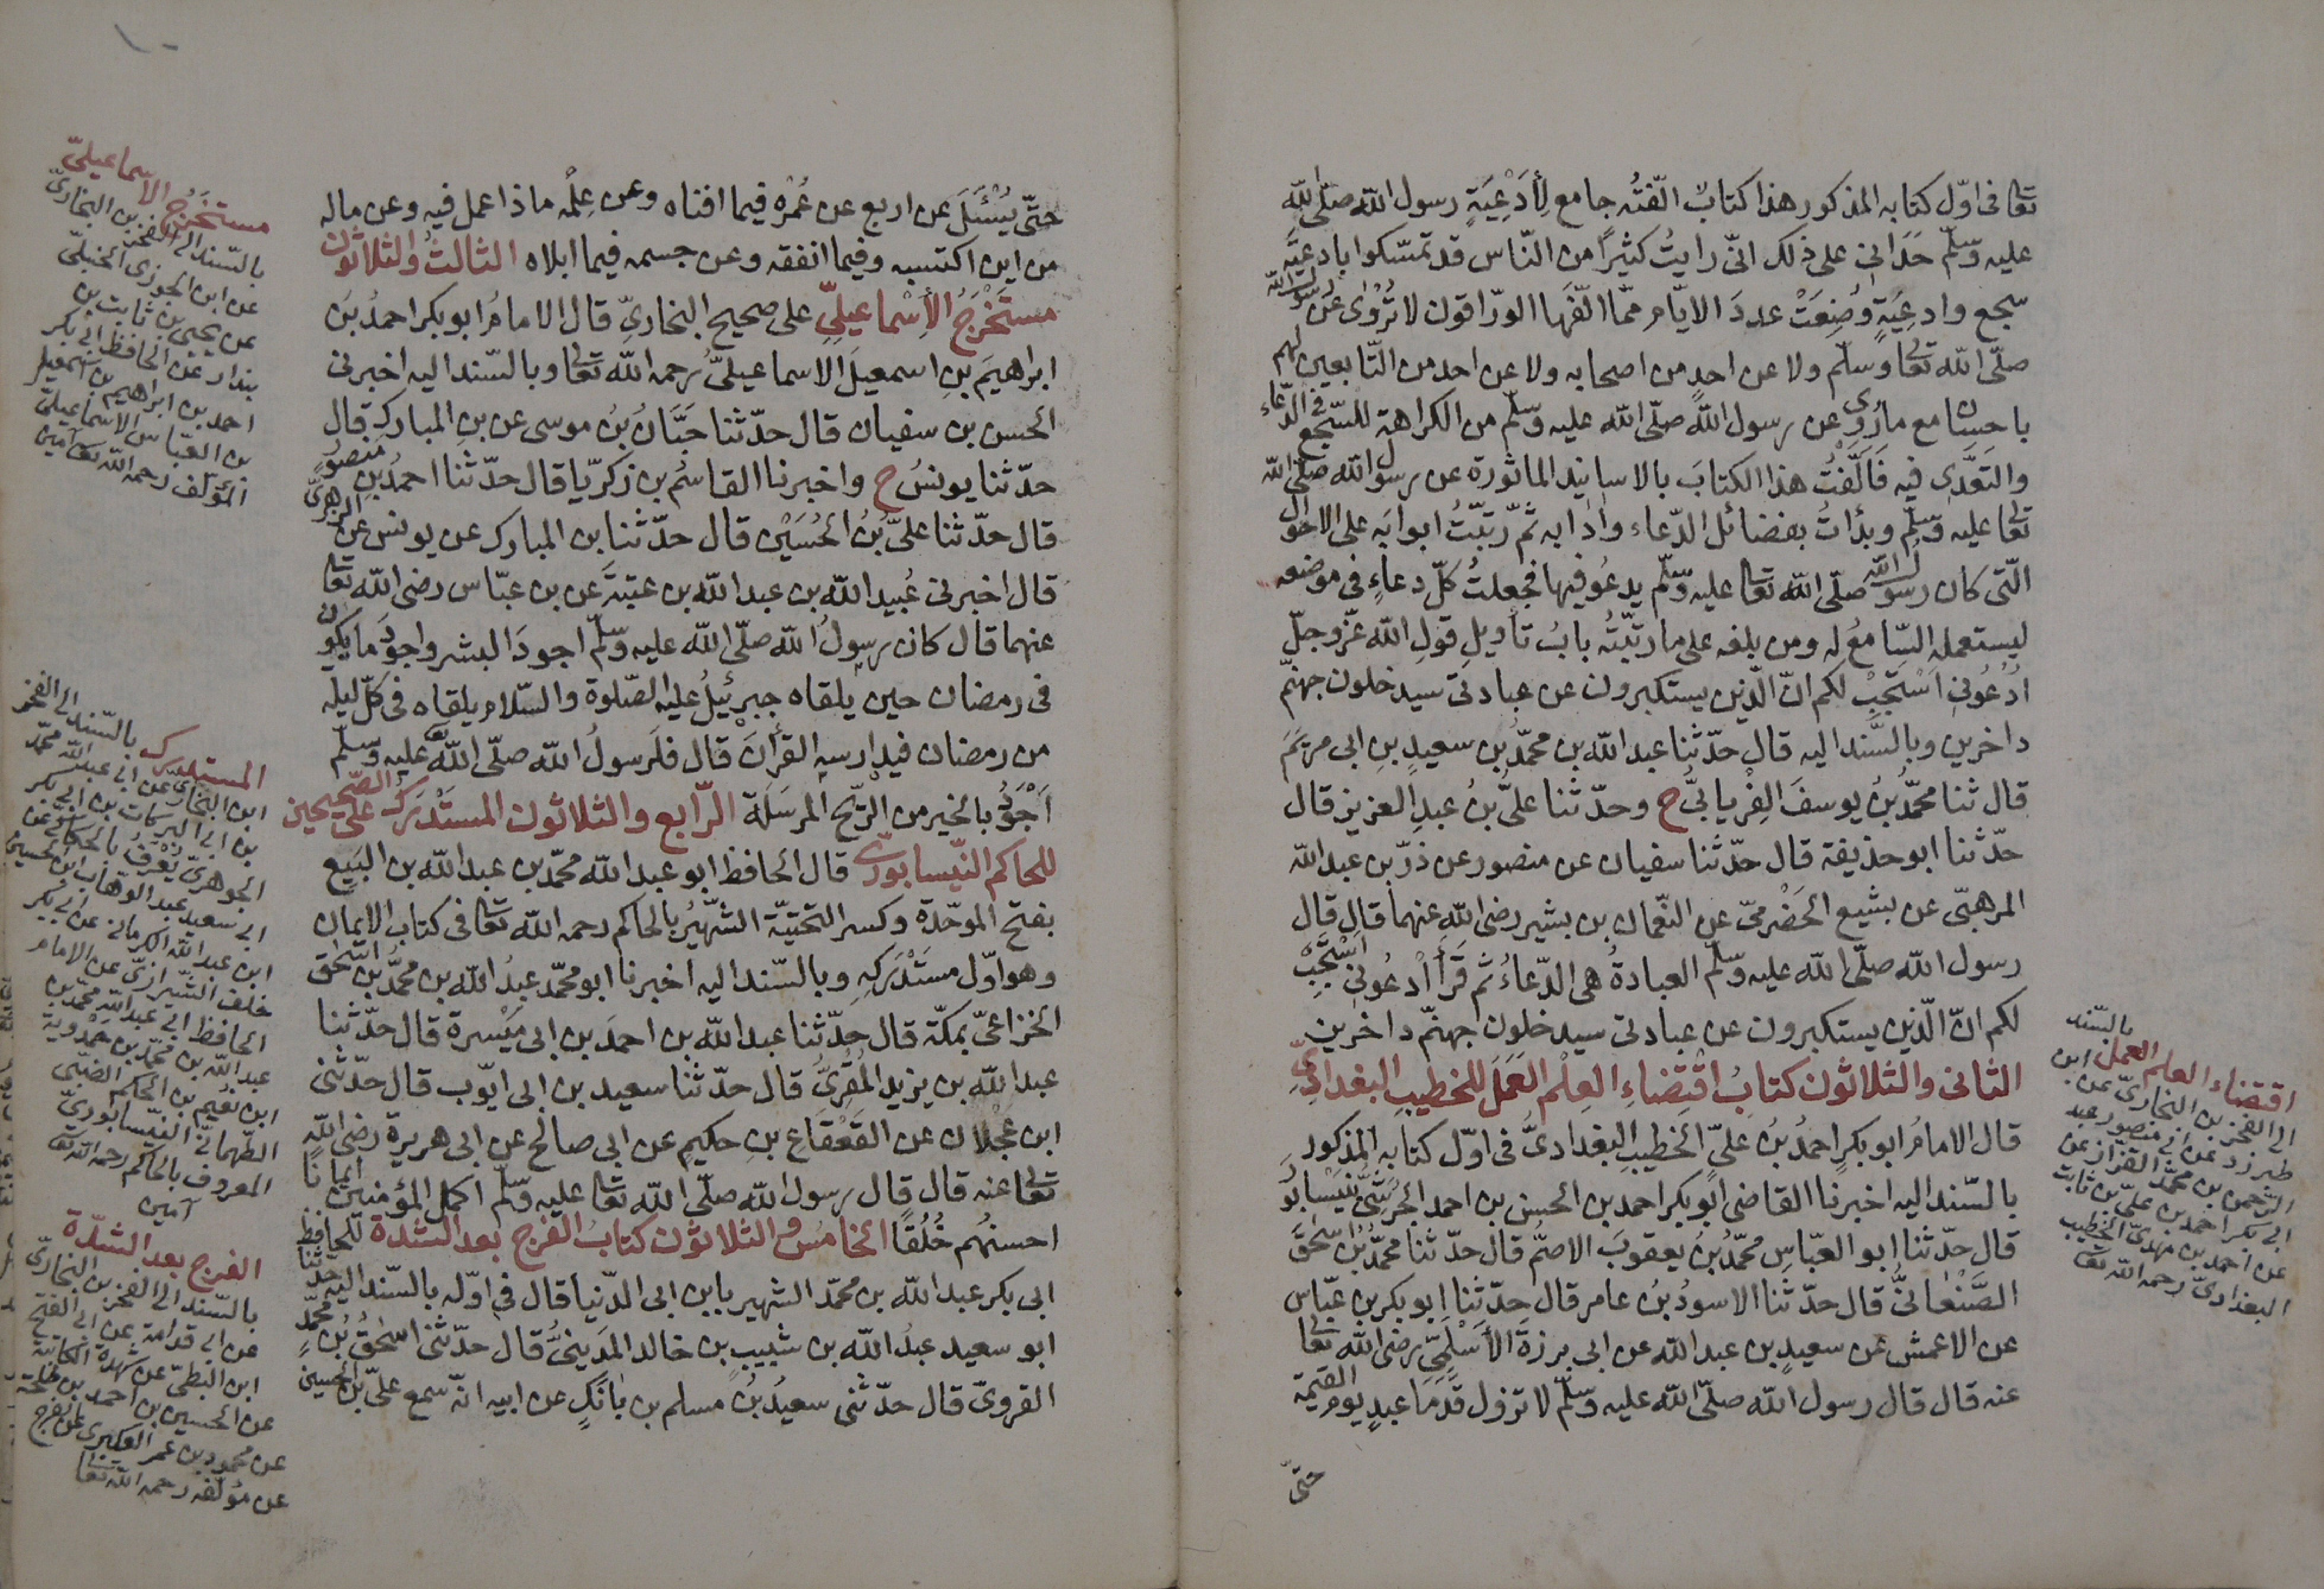 تعالى فى اوّل كتابه المذكور هذا كتابٌ الّفتُه جامع لِأَدْعِيَةِ رسول الله صلّى الله
عليه وسلّم حَدَانِى على ذلك انّى رايتُ كثيرًا من النّاس قد تمسّكوا بادعيَةِ
سجع وادعِيَةٍ وُضِعَتْ عددَ الايّام ممّا الّفها الورّاقون لا تُرْوٰى عن رسول الله
صلّى الله تعالى وسلّم ولا عن احدٍ من اصحابه ولا عن احد من التّابعين لهم
باحسان مع ما رُوِىَ عن رسول الله صلّى الله عليه وسلّم من الكراهة للسّجع فى الدّعاء
والتَعَدِّى فيه فَاَلَّفْتُ هذا الكتابَ بالاسانيد الماثورة عن رسول الله صلّى الله
تعالى عليه وسلّم وبدأتُ بفضائل الدّعاء واٰدابه ثمّ رتّبتُ ابوابَه على الاحوال
الّتى كان رسول الله صلّى الله تعالى عليه وسلّم يدعُو فيها فجعلتُ كلّ دعاءٍ فى موضعه
ليستعمله السّامعُ له ومن بلغه على ما رتّبتُه بابُ تاويلِ قولِ الله عزّ وجلّ
اُدْعُونِى اَسْتَجِبْ لكم انّ الّذين يستكبرون عن عبادتى سيدخلون جهنّم
داخرين وبالسَّند اليه قال حدّثنا عبد الله بن محمّدُ بن سعيدِ بنِ ابى مريَمَ
قال ثنا محمّدُ بنُ يوسفَ الفِرْيابىُّ ح وحدّثنا علىُّ بنُ عبدِ العزيز قال
حدّثنا ابو حذيفة قال حدّثنا سفيان عن منصور عن ذرّ بن عبد الله
المرهبّى عن يشيع الحَضْرمىّ عن النّعمان بن بشير رضى الله عنهما قال قال
رسول الله صلّى الله عليه وسلّم العبادةُ هى الدّعاءُ ثم قَرَأَ اُدْعُونِى اَسْتَجِبْ
لكم انّ الّذين يستكبرون عن عبادتى سيدخلون جهنّم داخرين
الثانى والثلاثون كتابُ اقْتِضَاءِ العِلْمِ العَمَلَ للخطيبِ البغدادِىِّ
قال الامامُ ابو بكرٍ احمدُ بنُ علىّ الخطيبِ البغدادىُّ فى اوّل كتابه المذكور
بالسّند اليه اخبرنا القاضى ابو بكر احمد بن الحسن بن احمد الحَرَشىُّ بنَيْسَابُورَ
قال حدّثنا ابو العبّاسِ محمّدُ بنُ يعقوبَ الاصمُّ قال حدّثنا محمّدُ بنُ اسحٰقَ
الصَّنْعانىُّ قال حدّثنا الاسودُ بنُ عامر قال حدّثنا ابو بكر بن عيّاش
عن الاعمش عن سعيدِ بن عبد الله عن ابى برزةَ الأَسْلَمِىِّ رضى الله تعالى
عنه قال قال رسول الله صلّى الله عليه وسلّم لا تزول قَدَمَا عبدٍ يوم القيٰمة
حتّى
بالسّند
اقتضاء العلم العمل
الى الفخر بن البخارىّ عن ابن
طبرزد عن ابى منصور عبد
الرّحمن بن محمّد القزاز عن
ابى بكر احمد بن علىّ بن ثابت
عن احمد بن مهدىّ الخطيب
البغدادىّ رحمه الله تعالى
١٠
حتّى يُسْئَلَ عن اربع عن عُمْرِه فيما افناه وعن عِلْمِه ماذا عمل فيه وعن ماله
من اين اكتسبه وفيما انفقه وعن جسمه فيما ابلاه الثالثُ والثلاثون
مستَخْرَجُ الأِسْماعيلِىِّ على صحيح البخارىِّ قال الامامُ ابو بكر احمدُ بنُ
ابراهيمَ بنِ اسمعيلَ الاسماعيلىُّ رحمه الله تعالى وبالسّند اليه اخبرنى
الحسن بن سفيان قال حدّثنا حَبَّانُ بنُ موسى عن بنِ المباركِ قال
حدّثنا يونسُ ح واخبرنا القاسمُ بن زكريّا قال حدّثنا احمدُ بن منصورٍ
قال حدّثنا علىُّ بنُ الحُسَيْنِ قال حدّثنا بن المبارك عن يونس عن الزهرىّ
قال اخبرنى عُبيد الله بن عبد الله بن عتبةَ عن بن عبّاس رضى الله تعالى
عنهما قال كان رسولُ الله صلّى الله عليه وسلّم اجودَ البشر واجودَ ما يكون
فى رمضان حين يلقاه جبرئيلُ عليه الصّلوة والسّلام يلقاه فى كلّ ليلة
من رمضان فيدارسه القراٰنَ قال فلَرسولُ الله صلّى الله تعالى عليه وسلّم
اَجْوَدُ بالخير من الرّيح المرسَلَة الرّابع والثلاثون المستَدْرَكُ على الصّحيحين
للحاكم النّيسابورىّ قال الحافظ ابو عبد الله محمّد بن عبد الله بن البيّع
بفتح الموحّدة وكسر التحتيّة الشّهِيرُ بالحاكم رحمه الله تعالى فى كتاب الايمان
وهو اوّل مستَدْرَكِهِ وبالسّند اليه اخبرنا ابو محمّد عبدُ الله بن محمّدُ بن اسحٰق
الخزاعىّ بمكّة قال حدّثنا عبد الله بن احمدَ بن ابى مَيْسرة قال حدّثنا
عبد الله بن يزيد المُقرِىُّ قال حدّثنا سعيد بن ابى ايّوب قال حدّثنى
ابن عَجْلان عن القَعْقَاعِ بنِ حكيمٍ عن ابى صالح عن ابى هريرة رضى الله
تعالى عنه قال قال رسول الله صلّى الله تعالى عليه وسلّم اكمل المؤمنين ايمانا
احسنُهم خُلُقًا الخامسُ والثلاثون كتابُ الفرج بعد الشّدة للحافظ
ابى بكر عبد الله بن محمّد الشهير بابن ابى الدّنيا قال فى اوّله بالسّند اليه حدّثنا
ابو سعيد عبدُ الله بن شبيبِ بن خالد المَدِينىُّ قال حدّثنى اسحٰقُ بنُ محمّدٍ
الفروىّ قال حدّثنى سعيدُ بنُ مسلم بن بَانَكٍ عن ابيه انّه سمع علىّ بن الحسين
مستخرج الاسماعيلىّ
بالسّند الى الفخر بن البخارىّ
عن ابن الجوزى الحنبلىّ
عن يحيى بن ثابت بن
بندار عن الحافظ ابى بكر
احمد بن ابراهيم بن اسمعيل
بن العبّاس الاسماعيلىّ
المؤلّف رحمه الله تعالى آمين
المستدرك بالسّند الى الفخر
ابن البخارىّ عن ابى عبد الله محمّد
بن ابى البركات بن ابى بكر
الجوهرىّ يُعْرَفُ
ابى سعيد عبد الوهّاب بن الحسين
ابن عبد الله الكرمانى عن ابى بكر
خلف الشّيرازىّ عن الامام
الحافظ ابى عبد الله محمّد بن
عبد الله بن محمّد بن حمدوية
ابن نُعَيم بن الحاكم الضبّى
الطّهمانىّ النيّسابورىّ
المعروف بالحاكم رحمه الله تعالى
آمين
الفرج بعد الشدّة
بالسّند الى الفخر بن البخارىّ
عن ابن قدامة عن ابى الفتح
ابن البطىّ عن شهدة الكاتبة
عن الحسين بن احمد بن طلحة
عن محمود بن عمر العكبرى
عن مؤلّفه رحمه الله تعالى